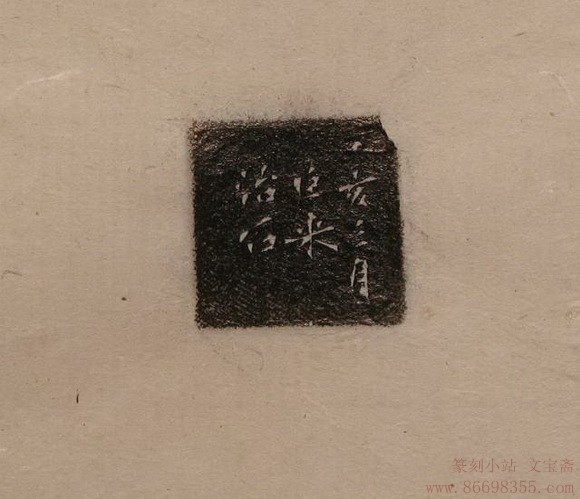 亥三月
巨来
治石
篆刻小站 文宝斋
www.86698355.com